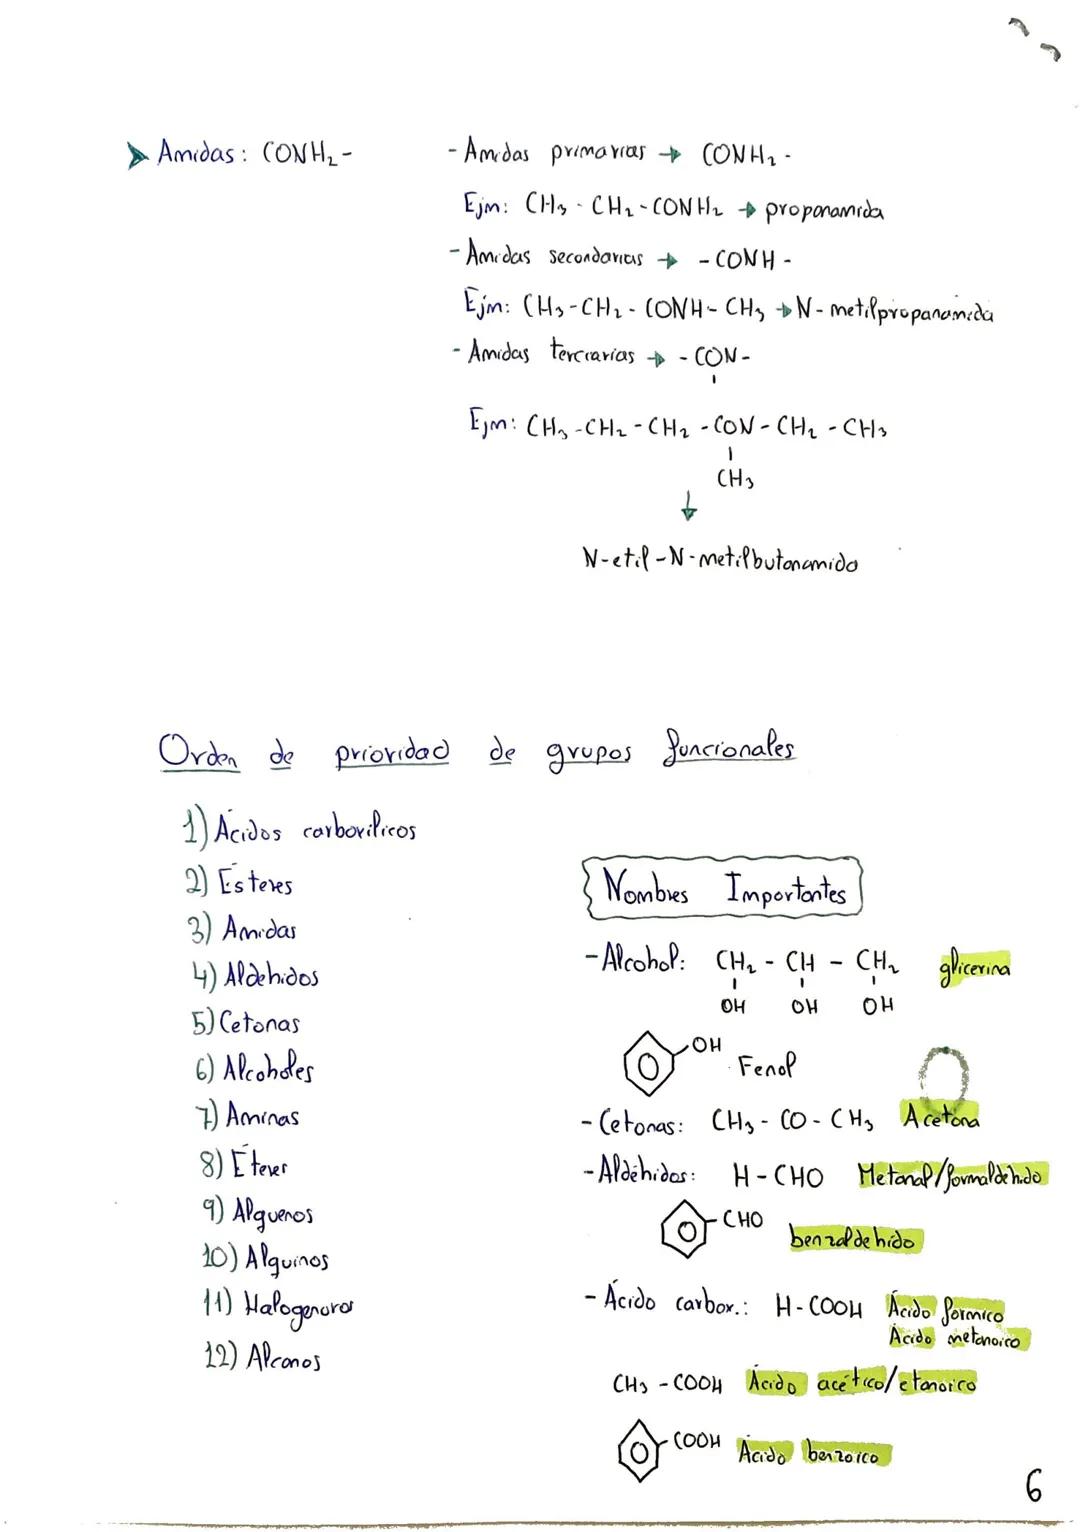 ➤ Amidas: CONH₂-
- Amidas primarias → CONH₂ -
Ejm: CH₃ - CH₂ - CONH₂ → propanamida
- Amidas secondarias → - CONH -
Ejm: CH₃-CH₂ - CONH- CH₃ → N- metilpropanamida
- Amidas terciarias → - CON-
Ejm: CH₃ -CH₂ - CH₂ - CON - CH₂ - CH₃
CH₃
↓
N-etil-N-metilbutanamida
Orden de prioridad de grupos funcionales
1) Ácidos carboxílicos
2) Ésteres
3) Amidas
4) Aldehidos
5) Cetonas
6) Alcoholes
7) Aminas
8) Éteres
9) Alquenos
10) Alquinos
11) Halogenuros
12) Alcanos
Nombres Importantes
- Alcohol: CH₂ - CH - CH₂ glicerina
OH OH OH
OH Fenol
- Cetonas: CH₃ - CO - CH₃ Acetona
- Aldéhidos: H - CHO Metanal/formaldehido
- CHO benzaldehido
- Ácido carbox.: H - COOH Ácido formico
Ácido metanoico
CH₃ - COOH Ácido acético/etanoico
- COOH Ácido benzoico
6